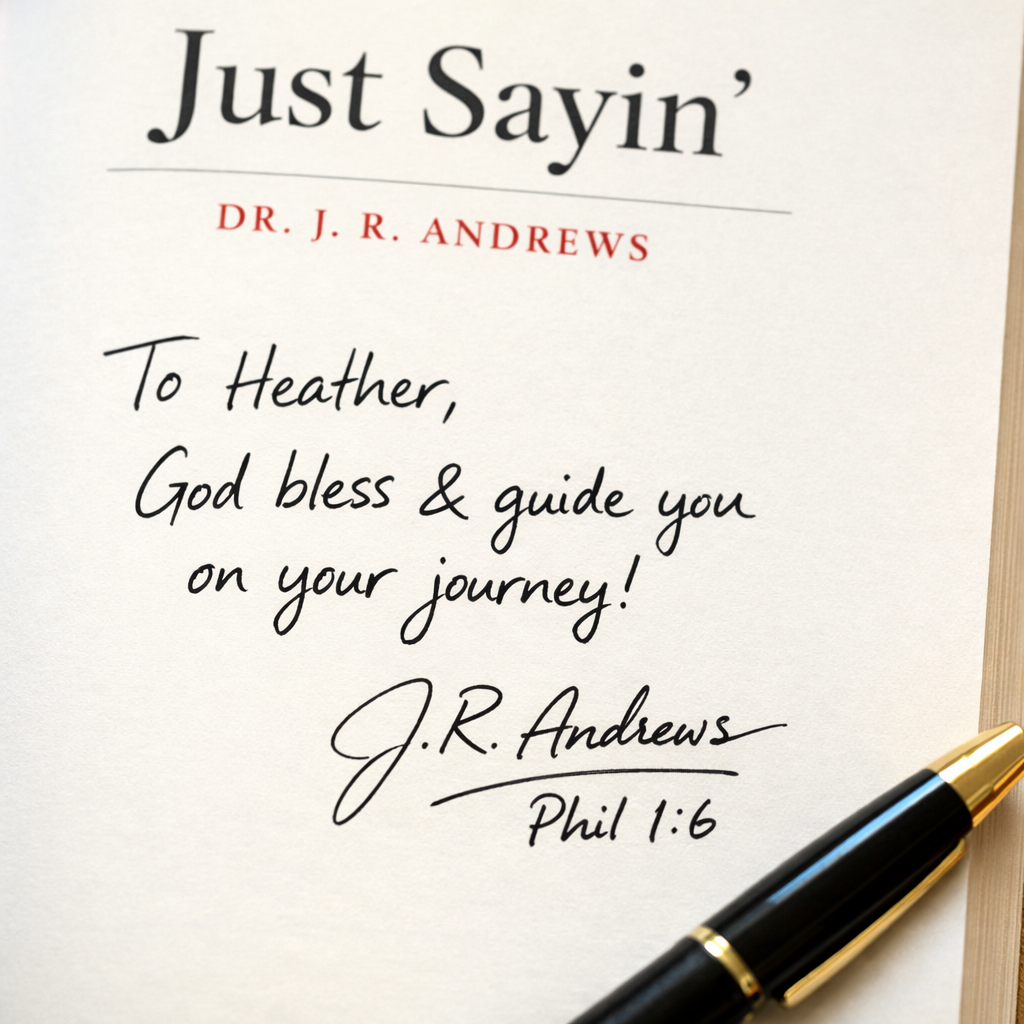 Just Sayin’
DR. J. R. ANDREWS
To Heather,
God bless & guide you
on your journey!
J.R. Andrews
Phil 1:6